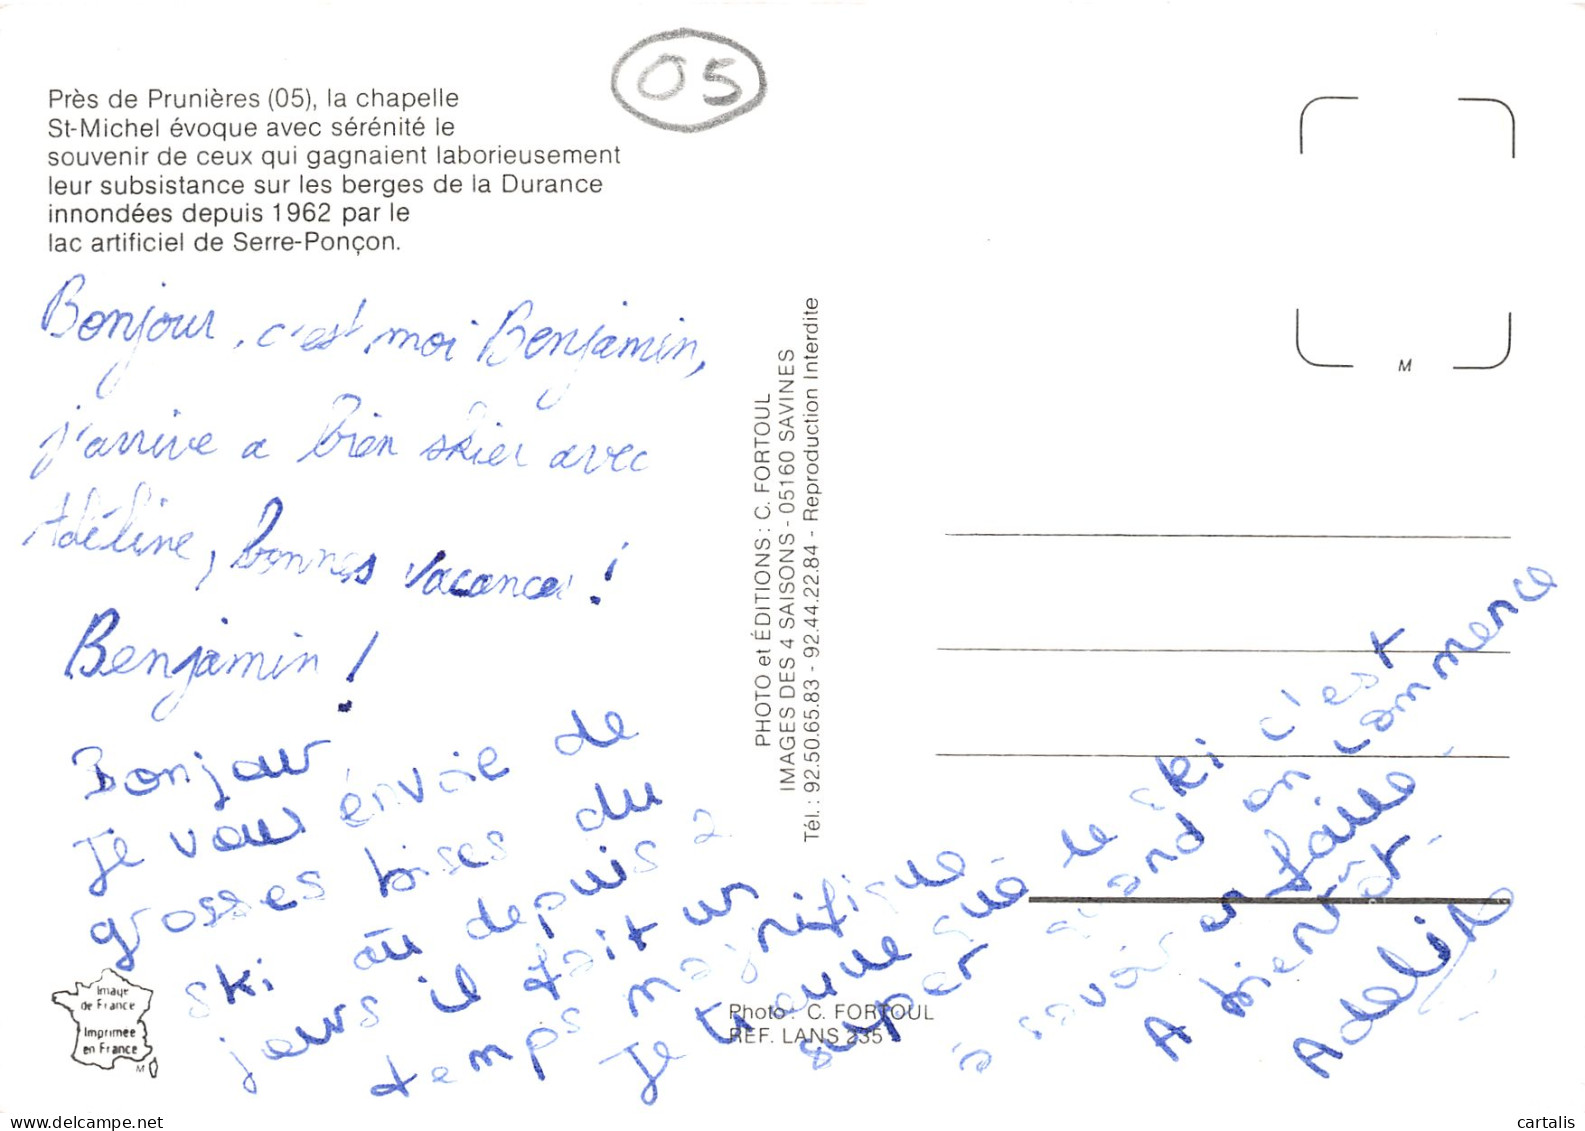 05
Près de Prunières (05), la chapelle
St-Michel évoque avec sérénité le
souvenir de ceux qui gagnaient laborieusement
leur subsistance sur les berges de la Durance
innondées depuis 1962 par le
lac artificiel de Serre-Ponçon.
Bonjour, c'est moi Benjamin,
j'arrive a bien skier avec
Adéline, bonnes vacances !
Benjamin !
Bonjour
Je vous envoie de
grosses bises du
ski où depuis 2
jours il fait un
temps magnifique
Je trouve que le ski c'est
super quand on commence
à savoir en faire.
A bientôt.
Adeline
PHOTO et ÉDITIONS : C. FORTOUL
IMAGES DES 4 SAISONS - 05160 SAVINES
Tél. : 92.50.65.83 - 92.44.22.84 - Reproduction Interdite
M
Image
de France
Imprimée
en France
M
Photo : C. FORTOUL
REF. LANS 235
www.delcampe.net
cartalis